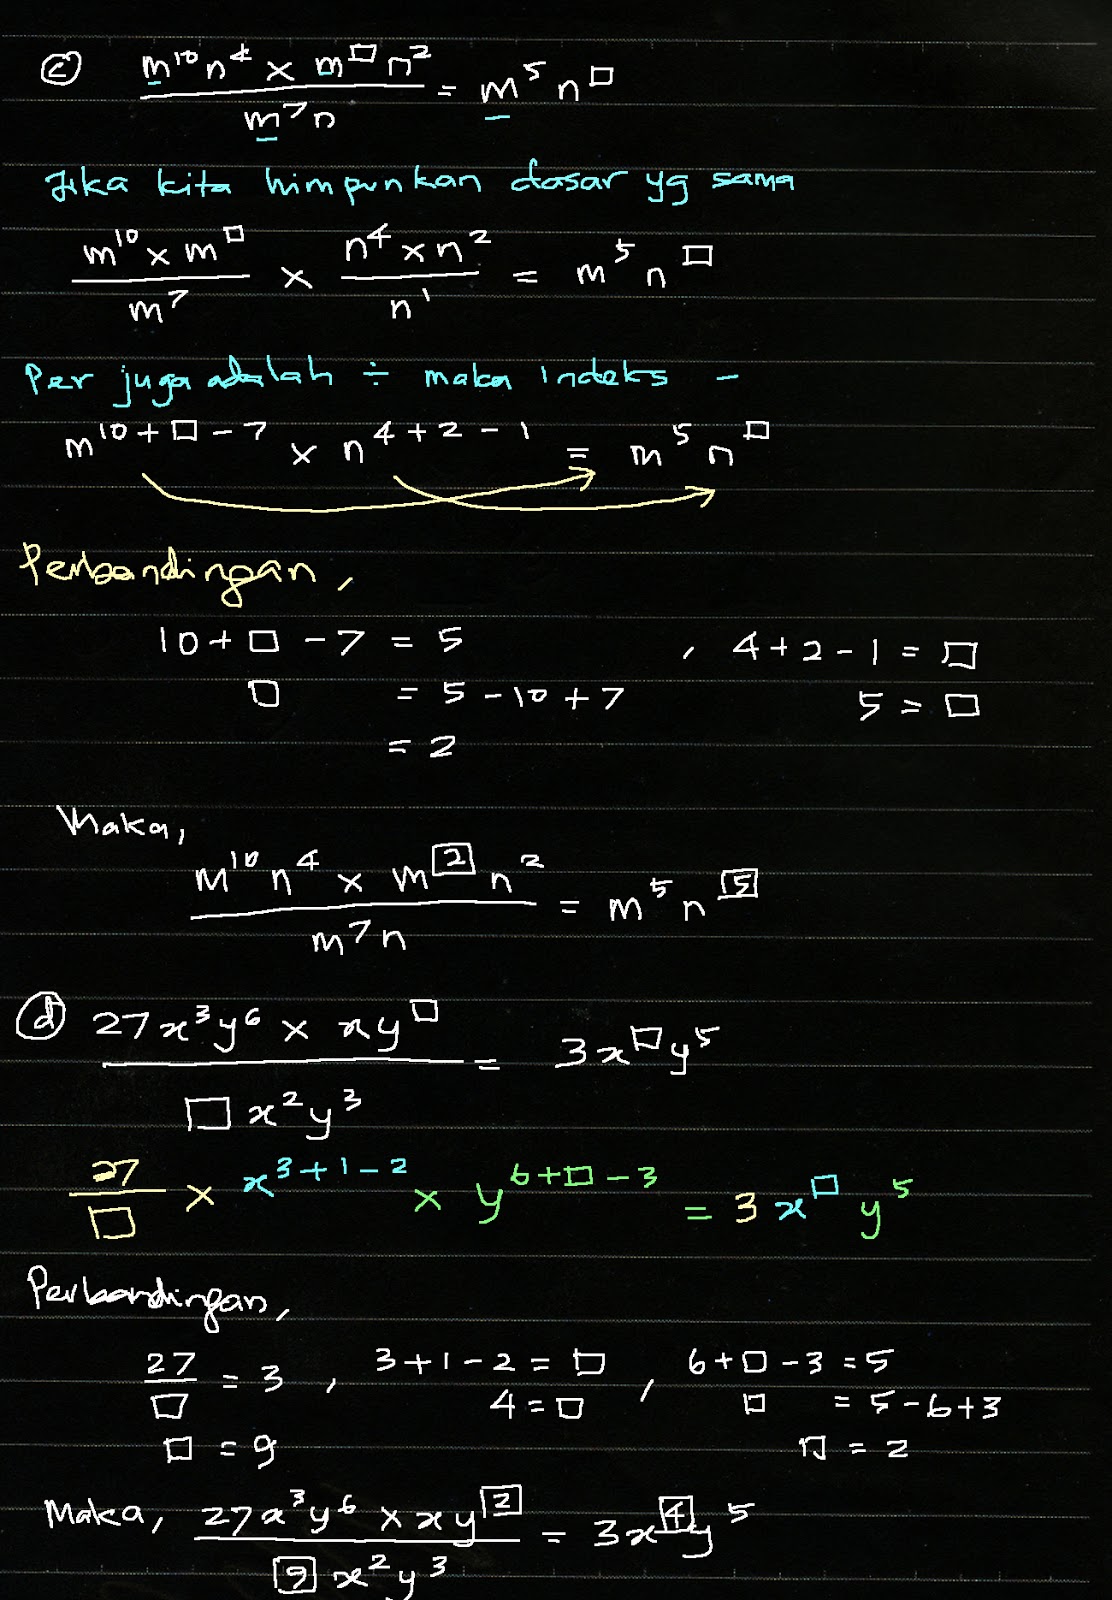 c) (m¹⁰n⁴ × m^□ n²) / (m⁷n) = m⁵ n^□
Jika kita himpunkan dasar yg sama
(m¹⁰ × m^□) / m⁷ × (n⁴ × n²) / n¹ = m⁵ n^□
Per juga adalah ÷ maka indeks –
m^(10 + □ – 7) × n^(4 + 2 – 1) = m⁵ n^□
Perbandingan,
10 + □ – 7 = 5 , 4 + 2 – 1 = □
□ = 5 – 10 + 7 5 = □
= 2
Maka,
(m¹⁰ n⁴ × m^[2] n²) / (m⁷n) = m⁵ n^[5]
d) (27x³y⁶ × xy^□) / (□x²y³) = 3x^□y⁵
27/□ × x^(3 + 1 – 2) × y^(6 + □ – 3) = 3x^□ y⁵
Perbandingan,
27/□ = 3 , 3 + 1 – 2 = □ , 6 + □ – 3 = 5
4 = □ □ = 5 – 6 + 3
□ = 9 □ = 2
Maka, (27x³y⁶ × xy^[2]) / ([9]x²y³) = 3x^[4]y⁵